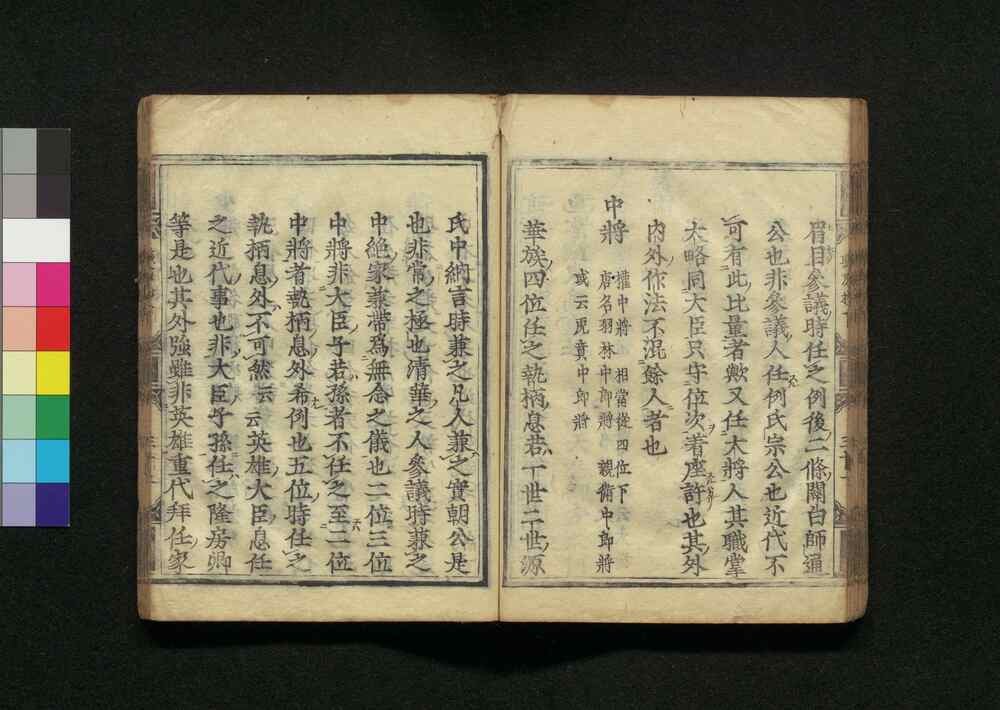 眉目參議時任之例後二條關白師通
公也非參議人任例氏宗公也近代不
可有此比量者歟又任大將人其職掌
大略同大臣只守位次著座許也其外
內外作法不混餘人者也
中將 權中將 相當從四位下
唐名羽林中郎將 親衛中郎將
或云虎賁中郎將
華族四位任之執柄息若一世二世源
氏中納言時兼之凡人兼之實朝公是
也非常之極也清華之人參議時兼之
中絕家兼帶爲無念之儀也二位三位
中將非大臣子若孫者不任之至二位
中將者執柄息外希例也五位時任之
執柄息外不可然云云英雄大臣息任
之近代事也非大臣子孫任之隆房卿
等是也其外強雖非英雄重代拜任家